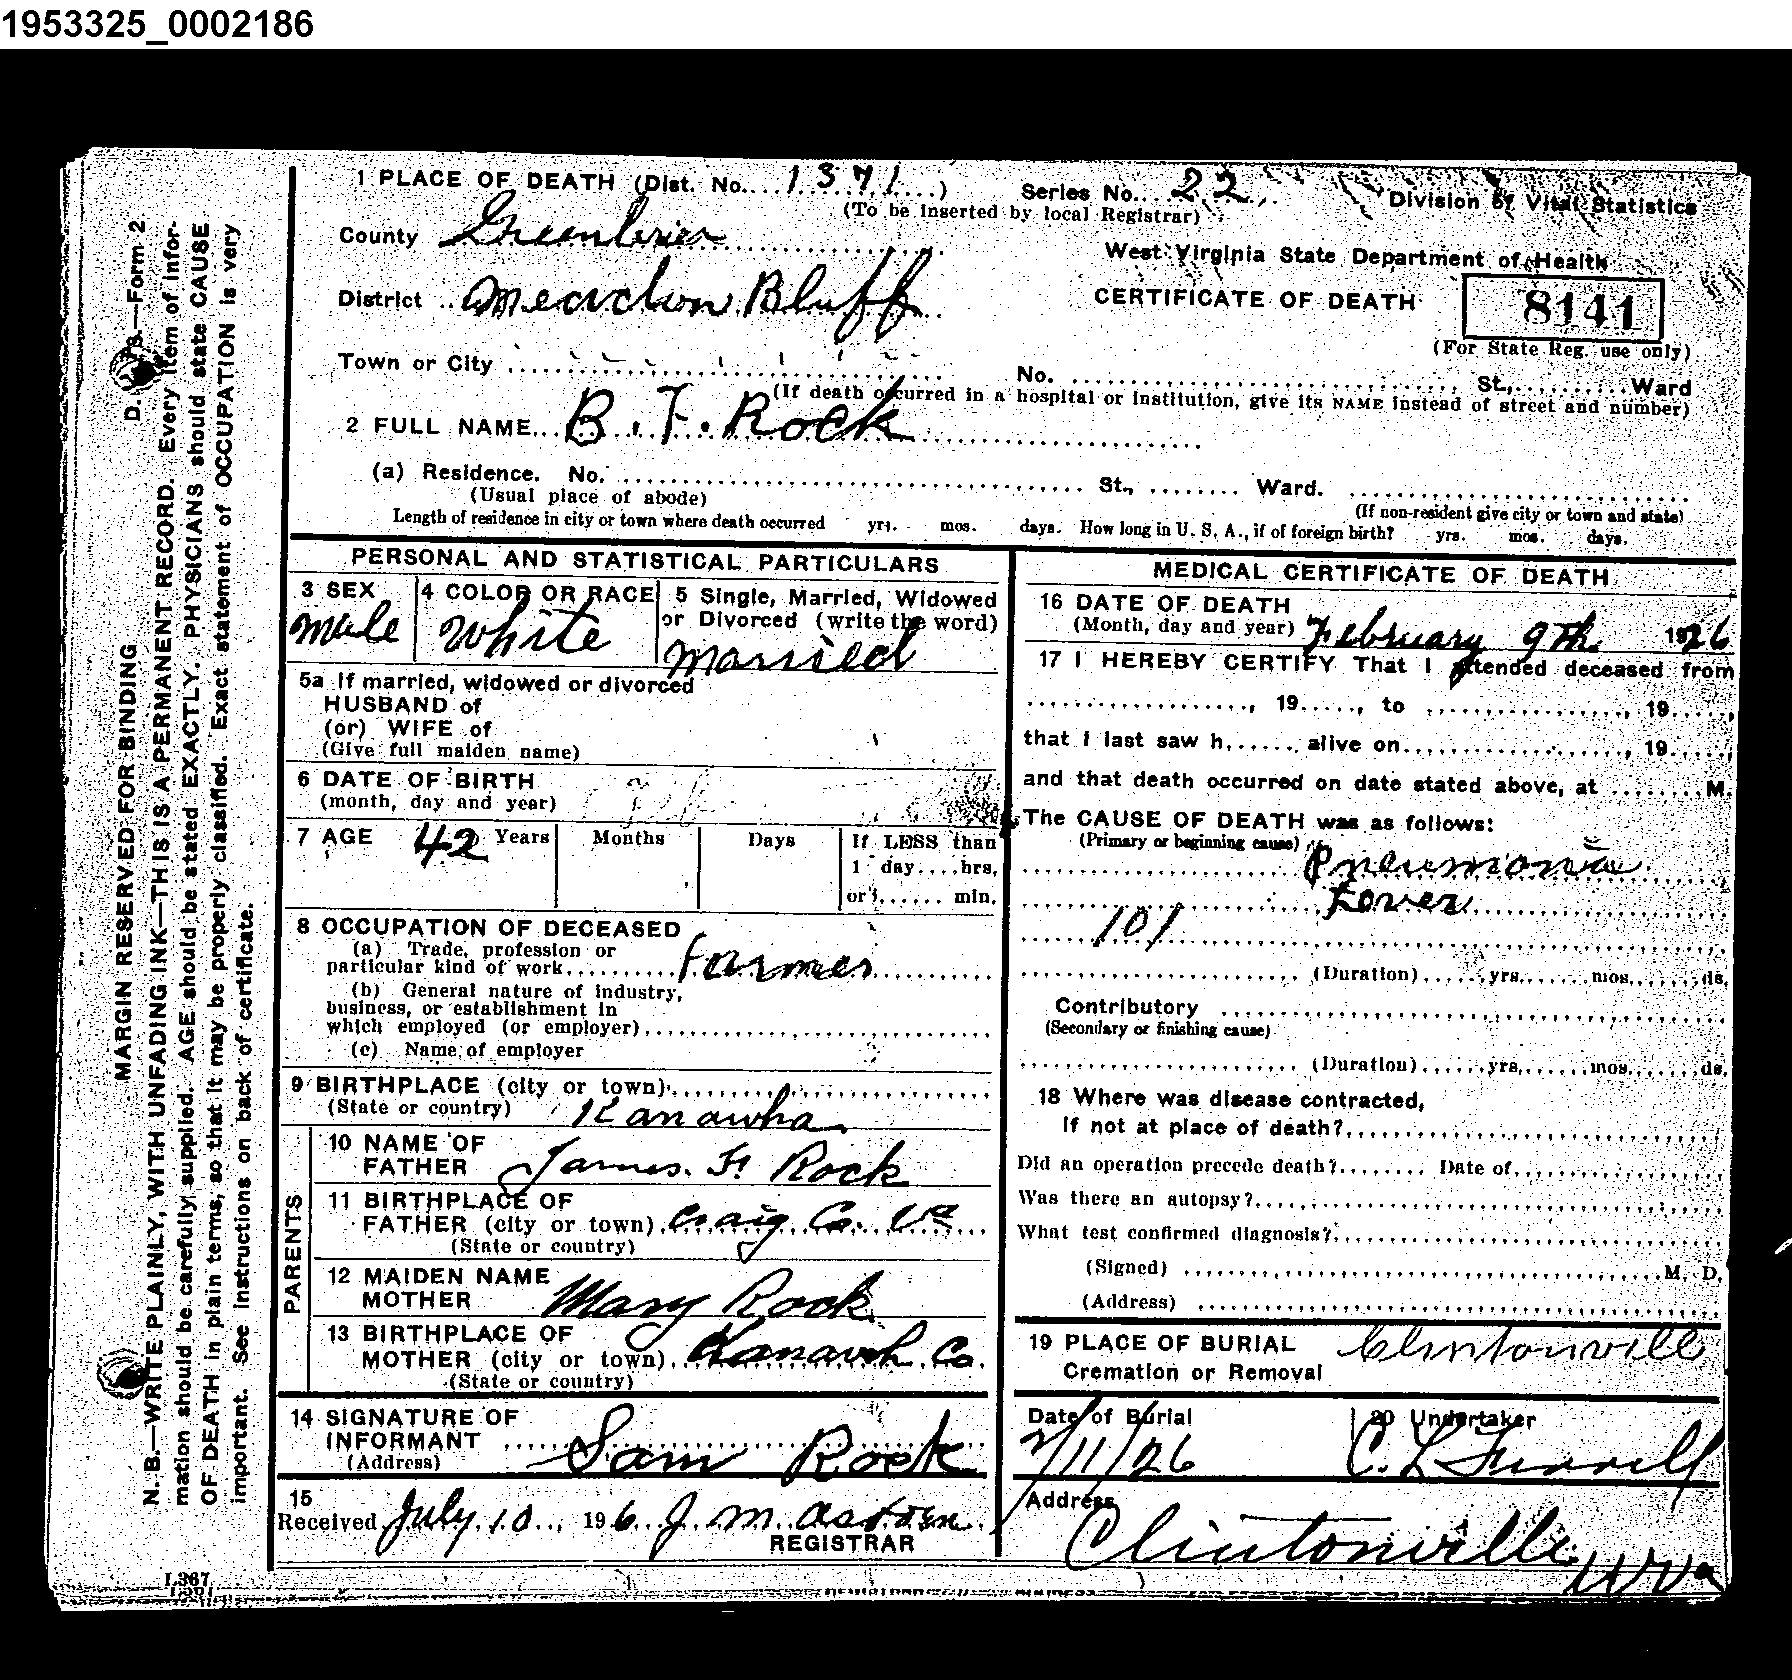 1953325_0002186
1 PLACE OF DEATH (Dist. No. 1371)
Series No. 22
(To be inserted by local Registrar)
Division of Vital Statistics
County Greenbrier
West Virginia State Department of Health
District Meadow Bluff
CERTIFICATE OF DEATH
8141
(For State Reg. use only)
Town or City
No. St., Ward
(If death occurred in a hospital or institution, give its NAME instead of street and number)
2 FULL NAME B. F. Rock
(a) Residence. No. St., Ward.
(Usual place of abode)
(If non-resident give city or town and state)
Length of residence in city or town where death occurred yrs. mos. days. How long in U. S. A., if of foreign birth? yrs. mos. days.
PERSONAL AND STATISTICAL PARTICULARS
3 SEX
male
4 COLOR OR RACE
White
5 Single, Married, Widowed
or Divorced (write the word)
married
5a If married, widowed or divorced
HUSBAND of
(or) WIFE of
(Give full maiden name)
6 DATE OF BIRTH
(month, day and year)
7 AGE 42 Years Months Days
If LESS than
1 day....hrs.
or...... min.
8 OCCUPATION OF DECEASED
(a) Trade, profession or
particular kind of work Farmer
(b) General nature of industry,
business, or establishment in
which employed (or employer)
(c) Name of employer
9 BIRTHPLACE (city or town)
(State or country) Kanawha
PARENTS
10 NAME OF
FATHER James. F. Rock
11 BIRTHPLACE OF
FATHER (city or town) Craig Co. Va
(State or country)
12 MAIDEN NAME
MOTHER Mary Rock
13 BIRTHPLACE OF
MOTHER (city or town) Kanawh Co.
(State or country)
14 SIGNATURE OF
INFORMANT Sam Rock
(Address)
15
Received July 10, 1926 J. M.
REGISTRAR
MEDICAL CERTIFICATE OF DEATH
16 DATE OF DEATH
(Month, day and year) February 9th. 1926
17 I HEREBY CERTIFY That I attended deceased from
, 19....., to , 19.....,
that I last saw h...... alive on , 19.....
and that death occurred on date stated above, at M.
The CAUSE OF DEATH was as follows:
(Primary or beginning cause)
Pneumonia
101
(Duration) yrs. mos. ds.
Contributory
(Secondary or finishing cause)
(Duration) yrs. mos. ds.
18 Where was disease contracted,
if not at place of death?
Did an operation precede death? Date of
Was there an autopsy?
What test confirmed diagnosis?
(Signed) M. D.
(Address)
19 PLACE OF BURIAL Clintonvill
Cremation or Removal
Date of Burial
2/11/26
20 Undertaker
C. L.
Address
Clintonville
WVa
D. V. S.—Form 2
MARGIN RESERVED FOR BINDING
N. B.—WRITE PLAINLY, WITH UNFADING INK—THIS IS A PERMANENT RECORD. Every item of infor-
mation should be carefully supplied. AGE should be stated EXACTLY. PHYSICIANS should state CAUSE
OF DEATH in plain terms, so that it may be properly classified. Exact statement of OCCUPATION is very
important. See instructions on back of certificate.
L367